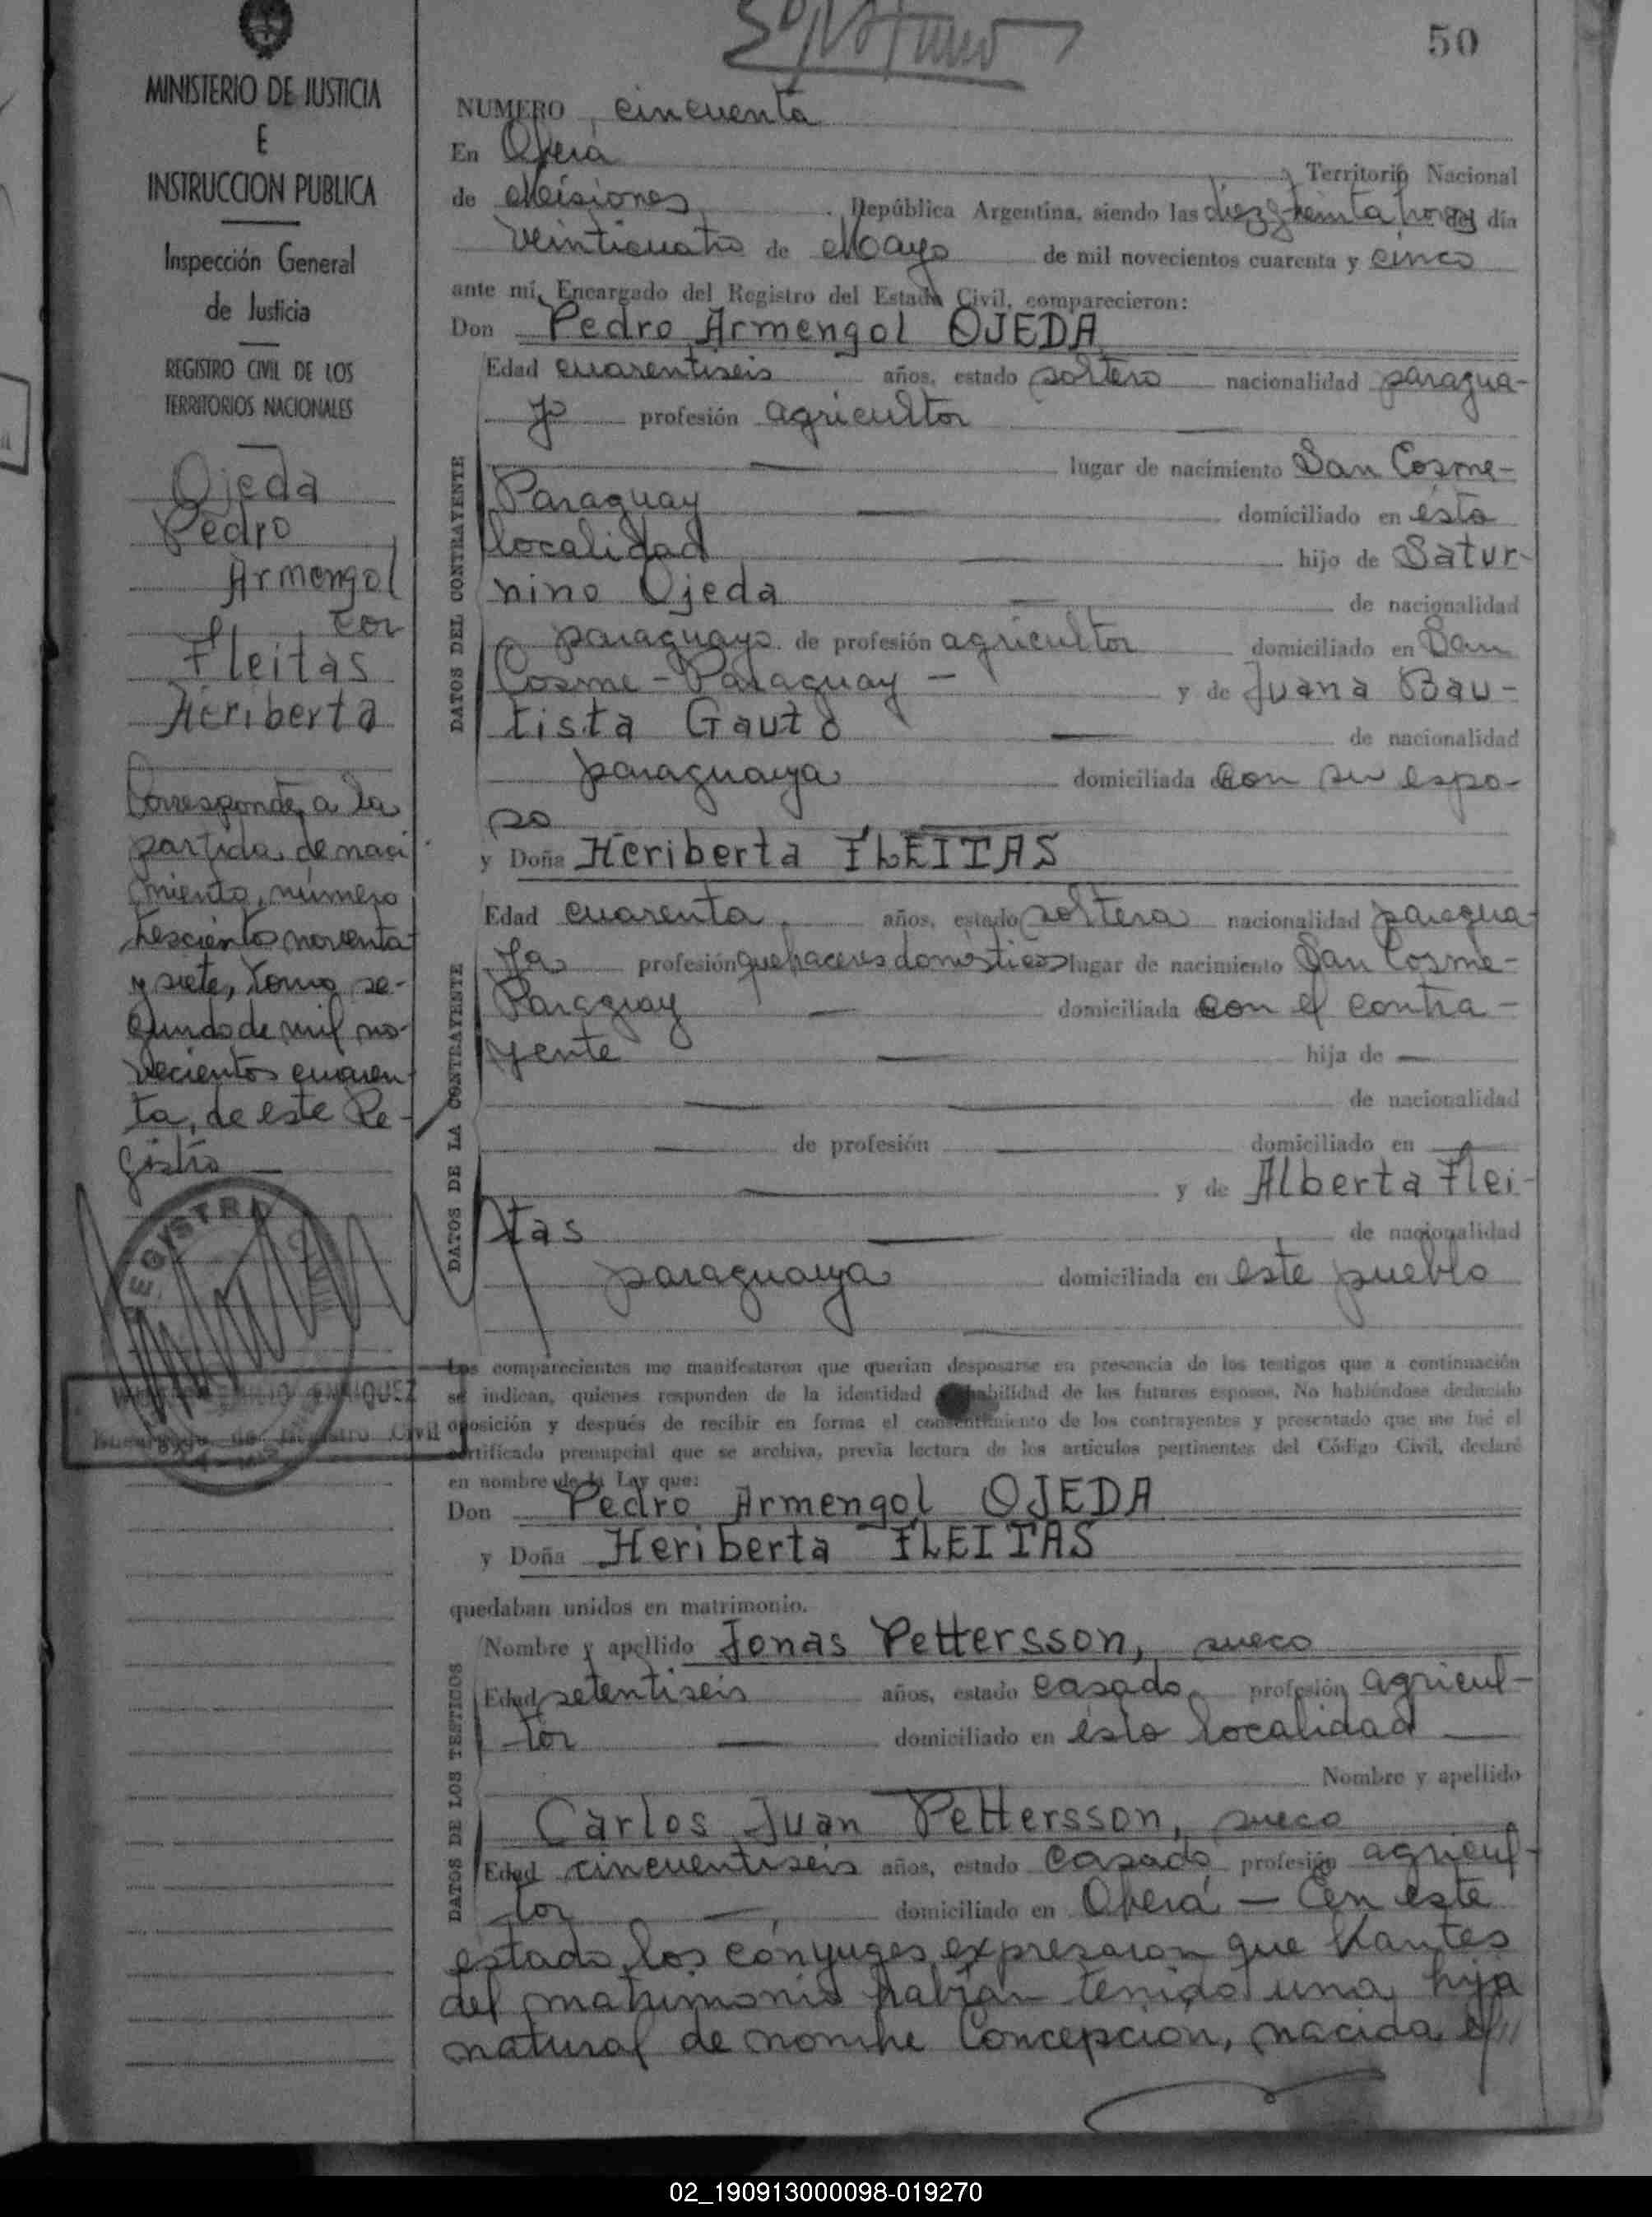 50
MINISTERIO DE JUSTICIA
E
INSTRUCCION PUBLICA
Inspección General
de Justicia
REGISTRO CIVIL DE LOS
TERRITORIOS NACIONALES
Ojeda
Pedro
Armengol
con
Fleitas
Heriberta
Corresponde a la
partida de naci
miento, número
trescientos noventa
y siete, tomo se-
gundo de mil no-
vecientos cuaren-
ta, de este Re-
gistro
REGISTRO CIVIL
ENRIQUEZ
Encargado de Registro Civil
NUMERO cincuenta
En Oberá Territorio Nacional
de Misiones República Argentina, siendo las diez y treinta horas del día
veinticuatro de Mayo de mil novecientos cuarenta y cinco
ante mí, Encargado del Registro del Estado Civil, comparecieron:
Don Pedro Armengol OJEDA
DATOS DEL CONTRAYENTE
Edad cuarentiseis años, estado soltero nacionalidad paragua-
yo profesión agricultor
lugar de nacimiento San Cosme-
Paraguay domiciliado en ésta
localidad hijo de Satur-
nino Ojeda de nacionalidad
paraguayo de profesión agricultor domiciliado en San
Cosme - Paraguay - y de Juana Bau-
tista Gauto de nacionalidad
paraguaya domiciliada con su espo-
so
y Doña Heriberta FLEITAS
DATOS DE LA CONTRAYENTE
Edad cuarenta años, estado soltera nacionalidad paragua-
ya profesión quehaceres domésticos lugar de nacimiento San Cosme-
Paraguay domiciliada con el contra-
yente hija de
de nacionalidad
de profesión domiciliado en
y de Alberta Flei-
tas de nacionalidad
paraguaya domiciliada en este pueblo
Los comparecientes me manifestaron que querían desposarse en presencia de los testigos que a continuación
se indican, quienes responden de la identidad habilidad de los futuros esposos. No habiéndose deducido
oposición y después de recibir en forma el consentimiento de los contrayentes y presentado que me fué el
certificado prenupcial que se archiva, previa lectura de los artículos pertinentes del Código Civil, declaré
en nombre de la Ley que:
Don Pedro Armengol OJEDA
y Doña Heriberta FLEITAS
quedaban unidos en matrimonio.
DATOS DE LOS TESTIGOS
Nombre y apellido Jonas Pettersson, sueco
Edad setentiseis años, estado casado profesión agricul-
tor domiciliado en ésta localidad
Nombre y apellido
Carlos Juan Pettersson, sueco
Edad cincuentiseis años, estado casado, profesión agricul-
tor domiciliado en Oberá - En este
estado los cónyuges expresaron que antes
del matrimonio habían tenido una hija
natural de nombre Concepcion, nacida el
02_190913000098-019270